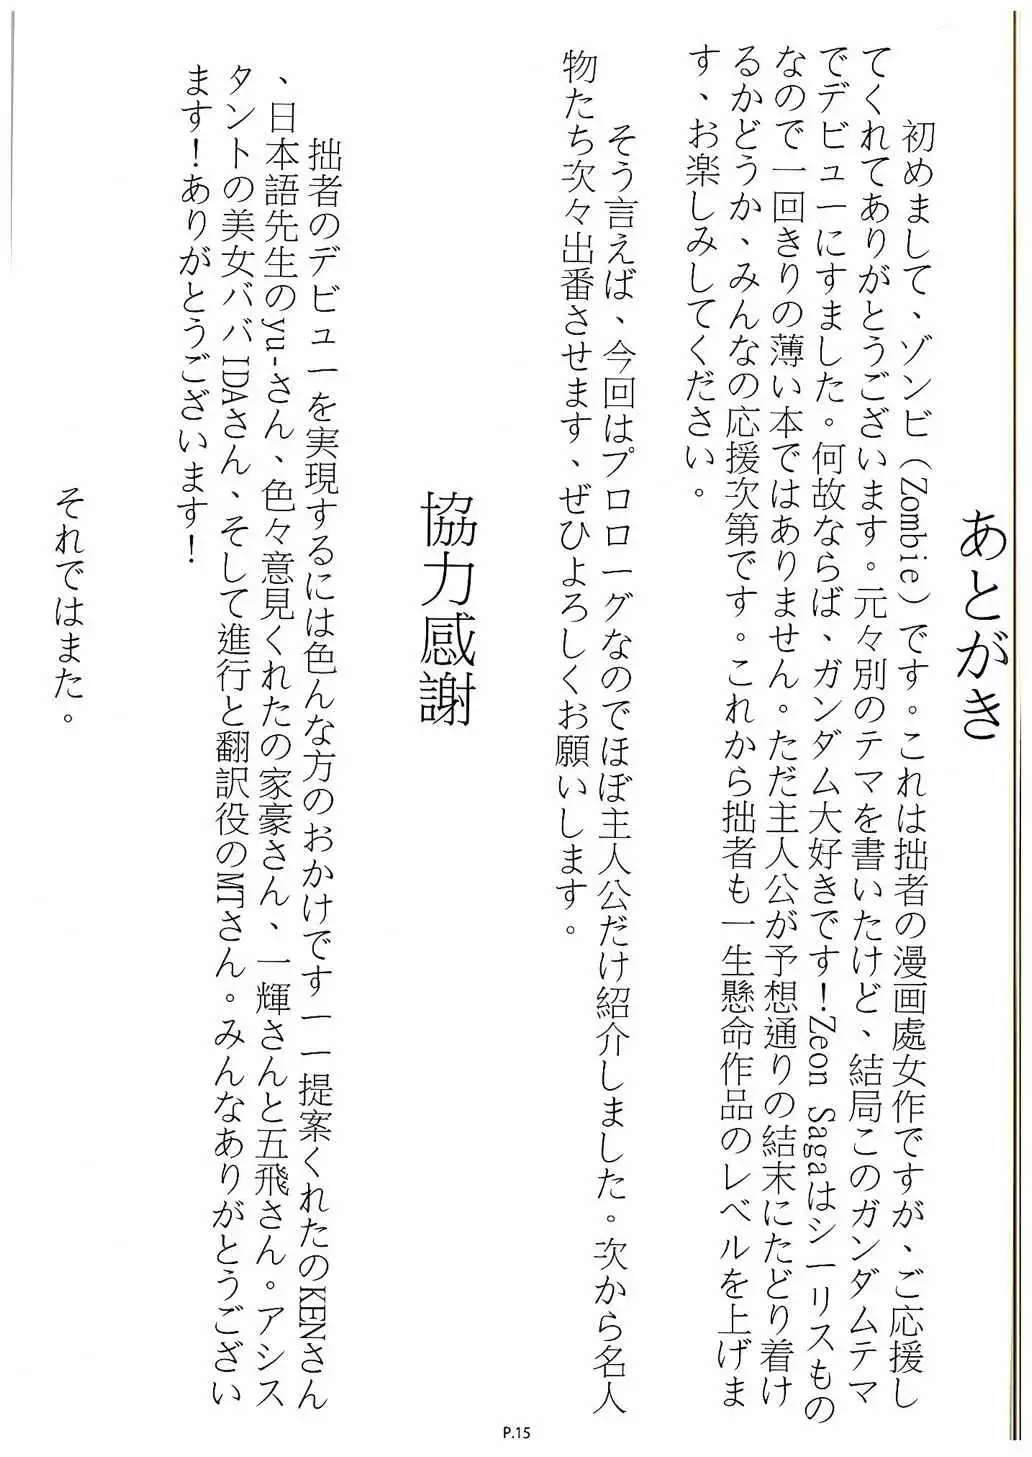 あとがき
初めまして、ゾンビ（Zombie）です。これは拙者の漫画處女作ですが、ご応援し
てくれてありがとうございます。元々別のテマを書いたけど、結局このガンダムテマ
でデビューにすました。何故ならば、ガンダム大好きです！Zeon Sagaはシーリスもの
なので一回きりの薄い本ではありません。ただ主人公が予想通りの結末にたどり着け
るかどうか、みんなの応援次第です。これから拙者も一生懸命作品のレベルを上げま
す、お楽しみしてください。
そう言えば、今回はプロローグなのでほぼ主人公だけ紹介しました。次から名人
物たち次々出番させます、ぜひよろしくお願いします。
協力感謝
拙者のデビューを実現するには色んな方のおかけです——提案くれたのKENさん
、日本語先生のyu-さん、色々意見くれたの家豪さん、一輝さんと五飛さん。アシス
タントの美女ババIDAさん、そして進行と翻訳役のMTさん。みんなありがとうござい
ます！ありがとうございます！
それではまた。
P.15